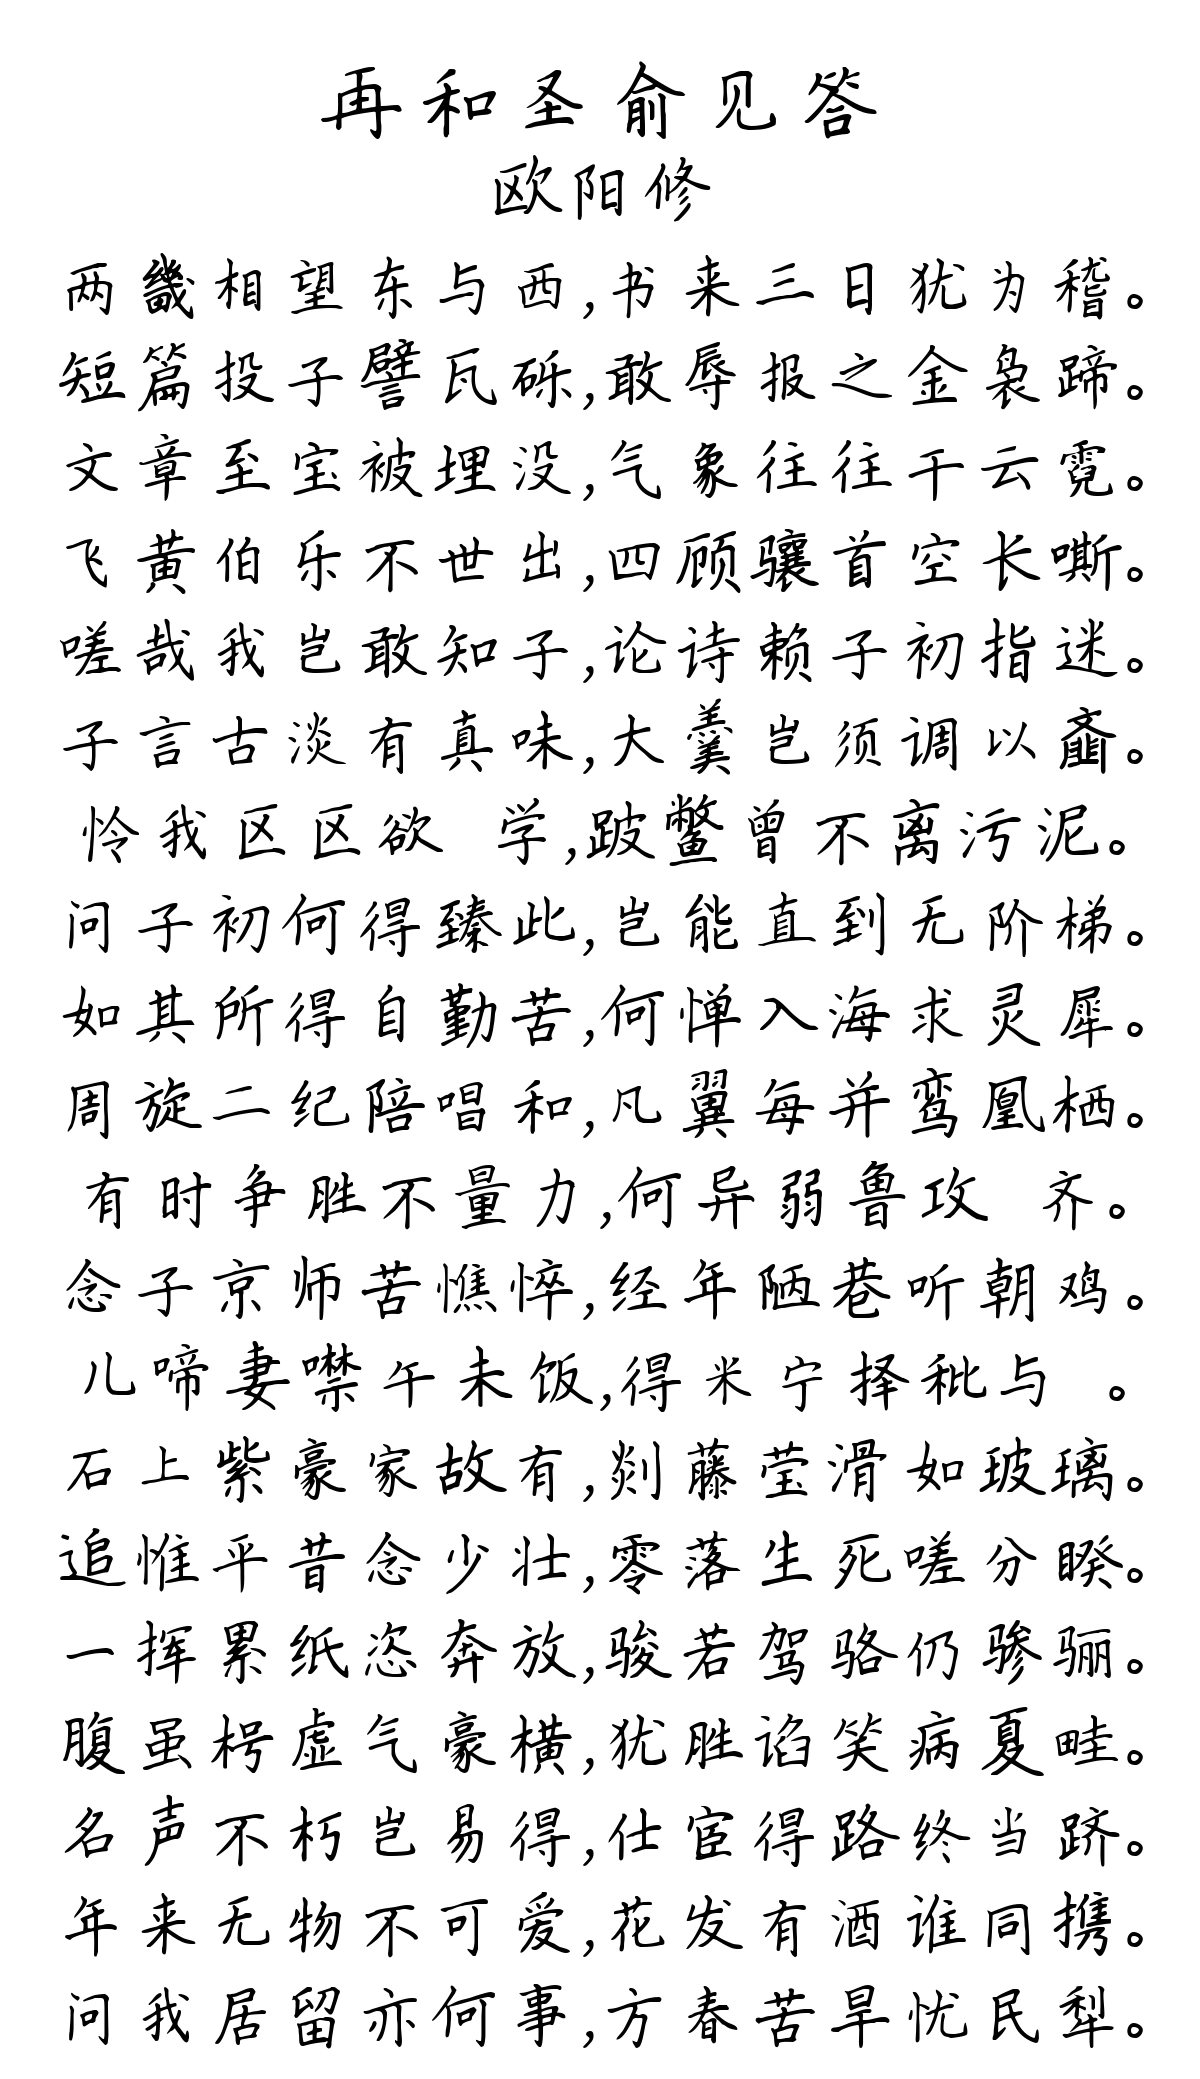 再和圣俞见答
欧阳修
两畿相望东与西,书来三日犹为稽。
短篇投子譬瓦砾,敢辱报之金袅蹄。
文章至宝被埋没,气象往往干云霓。
飞黄伯乐不世出,四顾骧首空长嘶。
嗟哉我岂敢知子,论诗赖子初指迷。
子言古淡有真味,大羹岂须调以齑。
怜我区区欲 学,跛鳖曾不离污泥。
问子初何得臻此,岂能直到无阶梯。
如其所得自勤苦,何惮入海求灵犀。
周旋二纪陪唱和,凡翼每并鸾凰栖。
有时争胜不量力,何异弱鲁攻 齐。
念子京师苦憔悴,经年陋巷听朝鸡。
儿啼妻噤午未饭,得米宁择秕与 。
石上紫豪家故有,剡藤莹滑如玻璃。
追惟平昔念少壮,零落生死嗟分睽。
一挥累纸恣奔放,骏若驾骆仍骖骊。
腹虽枵虚气豪横,犹胜谄笑病夏畦。
名声不朽岂易得,仕宦得路终当跻。
年来无物不可爱,花发有酒谁同携。
问我居留亦何事,方春苦旱忧民犁。